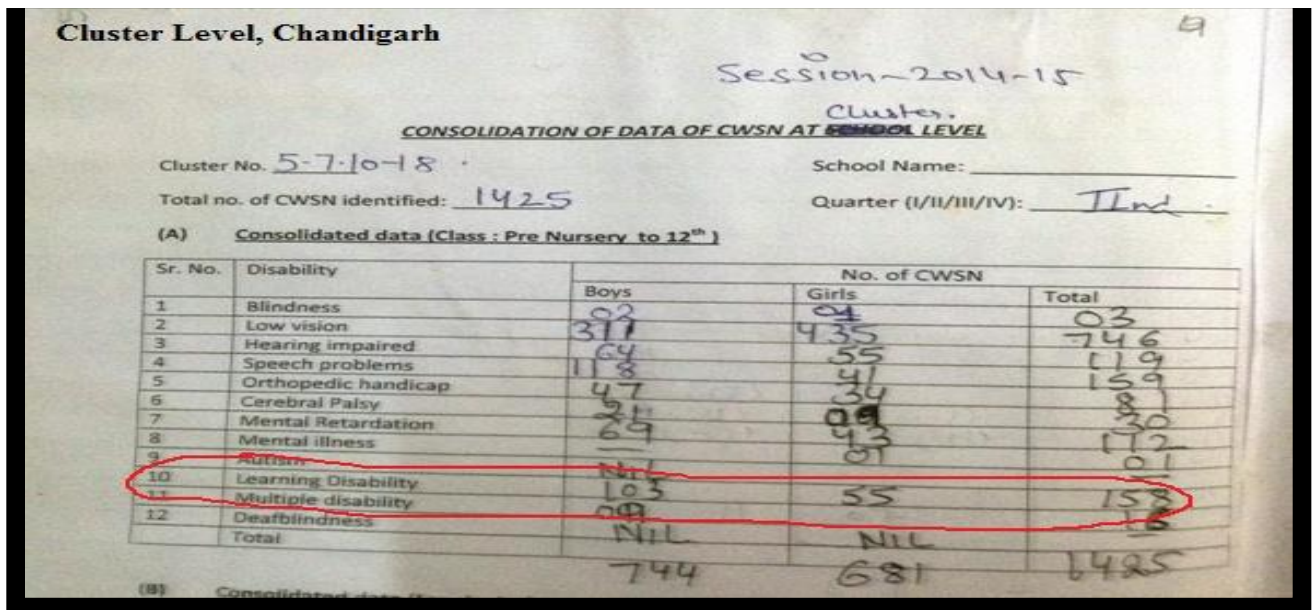 Cluster Level, Chandigarh
Session-2014-15
Cluster.
CONSOLIDATION OF DATA OF CWSN AT SCHOOL LEVEL
Cluster No. 5-7-10-18 School Name:
Total no. of CWSN identified: 1425 Quarter (I/II/III/IV): IInd
(A) Consolidated data (Class : Pre Nursery to 12th )
Sr. No. Disability No. of CWSN
Boys Girls Total
1 Blindness 02 01 03
2 Low vision 311 435 746
3 Hearing impaired 64 55 119
4 Speech problems 118 41 159
5 Orthopedic handicap 47 34 81
6 Cerebral Palsy 21 09 30
7 Mental Retardation 69 43 112
8 Mental illness — 01 01
9 Autism NIL —
10 Learning Disability 103 55 158
11 Multiple disability 09 16
12 Deafblindness NIL NIL —
Total 744 681 1425
(B) Consolidated data